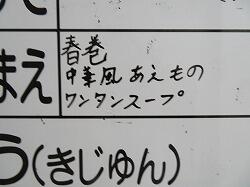 春巻
まえ 中華風あえもの
ワンタンスープ
う(きじゅん)